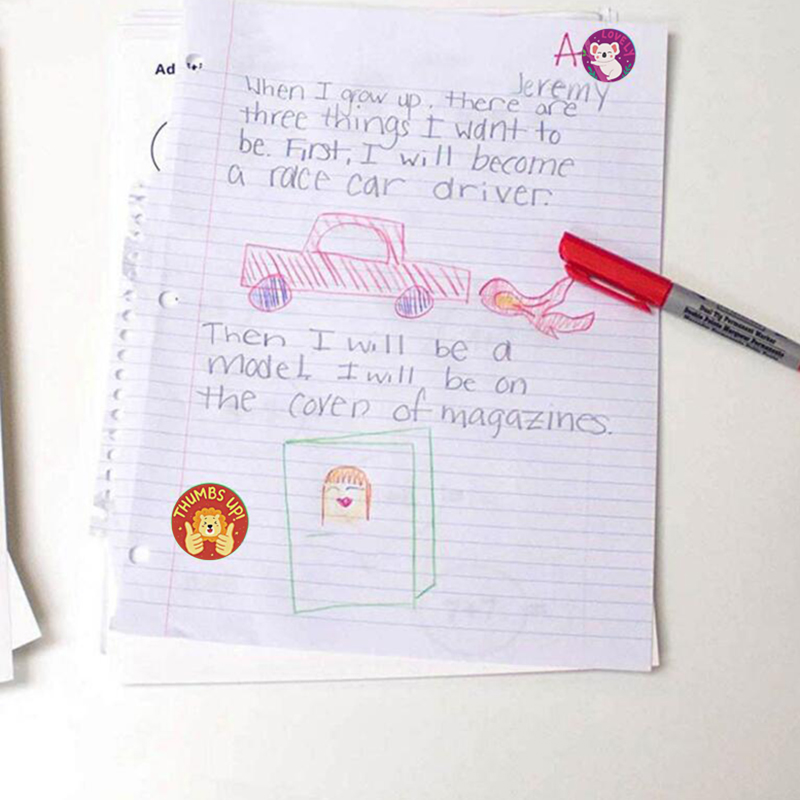 A
LOVELY
Jeremy
Ad
When I grow up, there are
three things I want to
be. First, I will become
a race car driver.
Then I will be a
model. I will be on
the cover of magazines.
THUMBS UP!